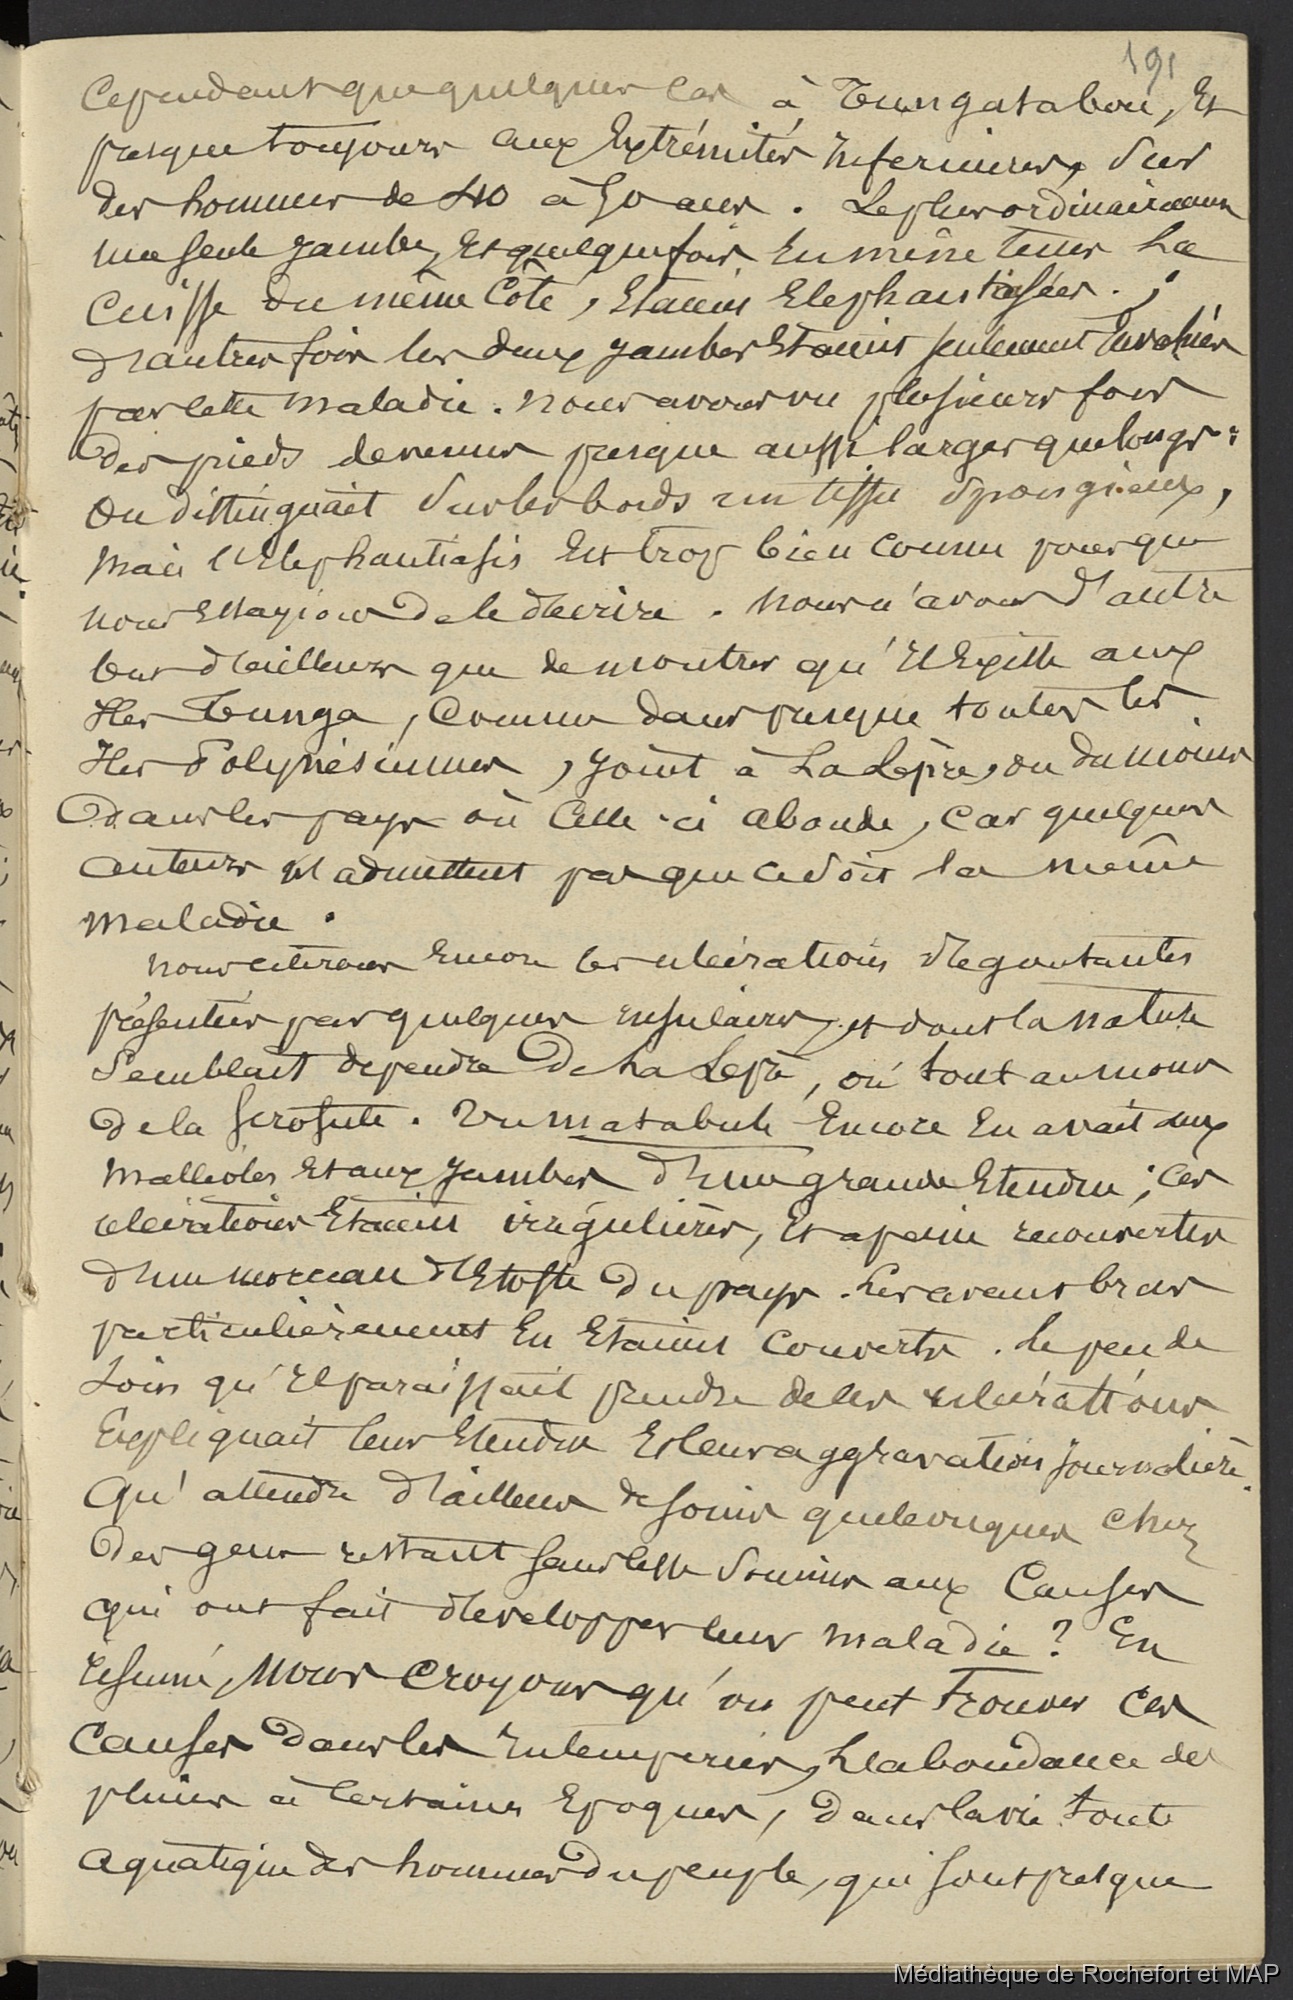 191
Cependant que quelques cas à Tungatabou, Et
presque toujours aux Extrémités Inferieures, Sur
des hommes de 40 à 50 ans. Le plus ordinairement
une seule Jambe, Et quelquefois En même tems La
Cuisse du même Côté, Etaient Elephantiasées ;
d'autres fois les deux Jambes Etaient seulement Envahies
par cette maladie. nous avons vu plusieurs fois
Des pieds devenus presque aussi larges que longs :
On distinguait Sur les bords un tissu Spongieux,
mais l'Elephantiasis Est trop bien connu pour que
nous Essayions De le décrire. nous n'avons d'autre
but d'ailleurs que de montrer qu'Il Existe aux
Iles Tunga, Comme dans presque toutes les
Iles Polynésiennes, Joint à La Lèpre, ou du moins
Dans les pays où Celle-ci abonde, Car quelques
auteurs n'admettent pas que ce soit la même
maladie.
nous citerons Encore les ulcérations dégoutantes
présentées par quelques insulaires, et dont la nature
Semblait dépendre De La Lèpre, où tout au moins
De la Scrofule. Un matabule Encore En avait aux
Malléoles Et aux Jambes d'une grande Etendue ; Ces
ulcérations Etaient irrégulières, Et a peine recouvertes
d'un morceau d'Etoffe Du pays. Les avant bras
particulièrement En Etaient Couverts. Le peu de
Soin qu'Il paraissait prendre de les ulcérations
Expliquait leur Etendue Et leur aggravation Journalière.
Qu'attendre d'ailleurs de soins quelconques chez
Des gens restant sans cesse Soumis aux Causes
qui ont fait développer leur maladie ? En
résumé, Nous Croyons qu'on peut trouver Ces
Causes Dans les Intemperies, L'abondance des
pluies à Certaines Epoques, Dans la vie toute
aquatique des hommes Du peuple, qui sont presque
Médiathèque de Rochefort et MAP